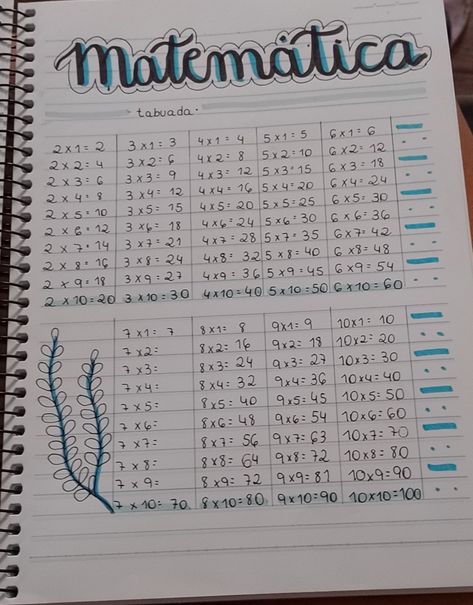 Matemática
tabuada.
2x1=2 3x1=3 4x1=4 5x1=5 6x1=6
2x2=4 3x2=6 4x2=8 5x2=10 6x2=12
2x3=6 3x3=9 4x3=12 5x3=15 6x3=18
2x4=8 3x4=12 4x4=16 5x4=20 6x4=24
2x5=10 3x5=15 4x5=20 5x5=25 6x5=30
2x6=12 3x6=18 4x6=24 5x6=30 6x6=36
2x7=14 3x7=21 4x7=28 5x7=35 6x7=42
2x8=16 3x8=24 4x8=32 5x8=40 6x8=48
2x9=18 3x9=27 4x9=36 5x9=45 6x9=54
2x10=20 3x10=30 4x10=40 5x10=50 6x10=60
7x1=7 8x1=8 9x1=9 10x1=10
7x2= 8x2=16 9x2=18 10x2=20
7x3= 8x3=24 9x3=27 10x3=30
7x4= 8x4=32 9x4=36 10x4=40
7x5= 8x5=40 9x5=45 10x5=50
7x6= 8x6=48 9x6=54 10x6=60
7x7= 8x7=56 9x7=63 10x7=70
7x8= 8x8=64 9x8=72 10x8=80
7x9= 8x9=72 9x9=81 10x9=90
7x10=70 8x10=80 9x10=90 10x10=100